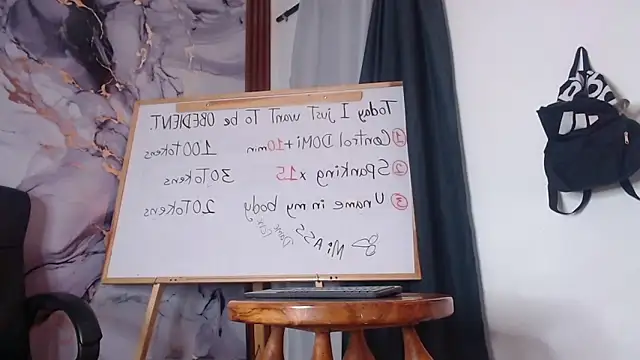 Today I just want To be OBEDIENT.
① Control DOMi + 10 min 100 Tokens
② Spanking x 15 30 Tokens
③ U name in my body 20 Tokens